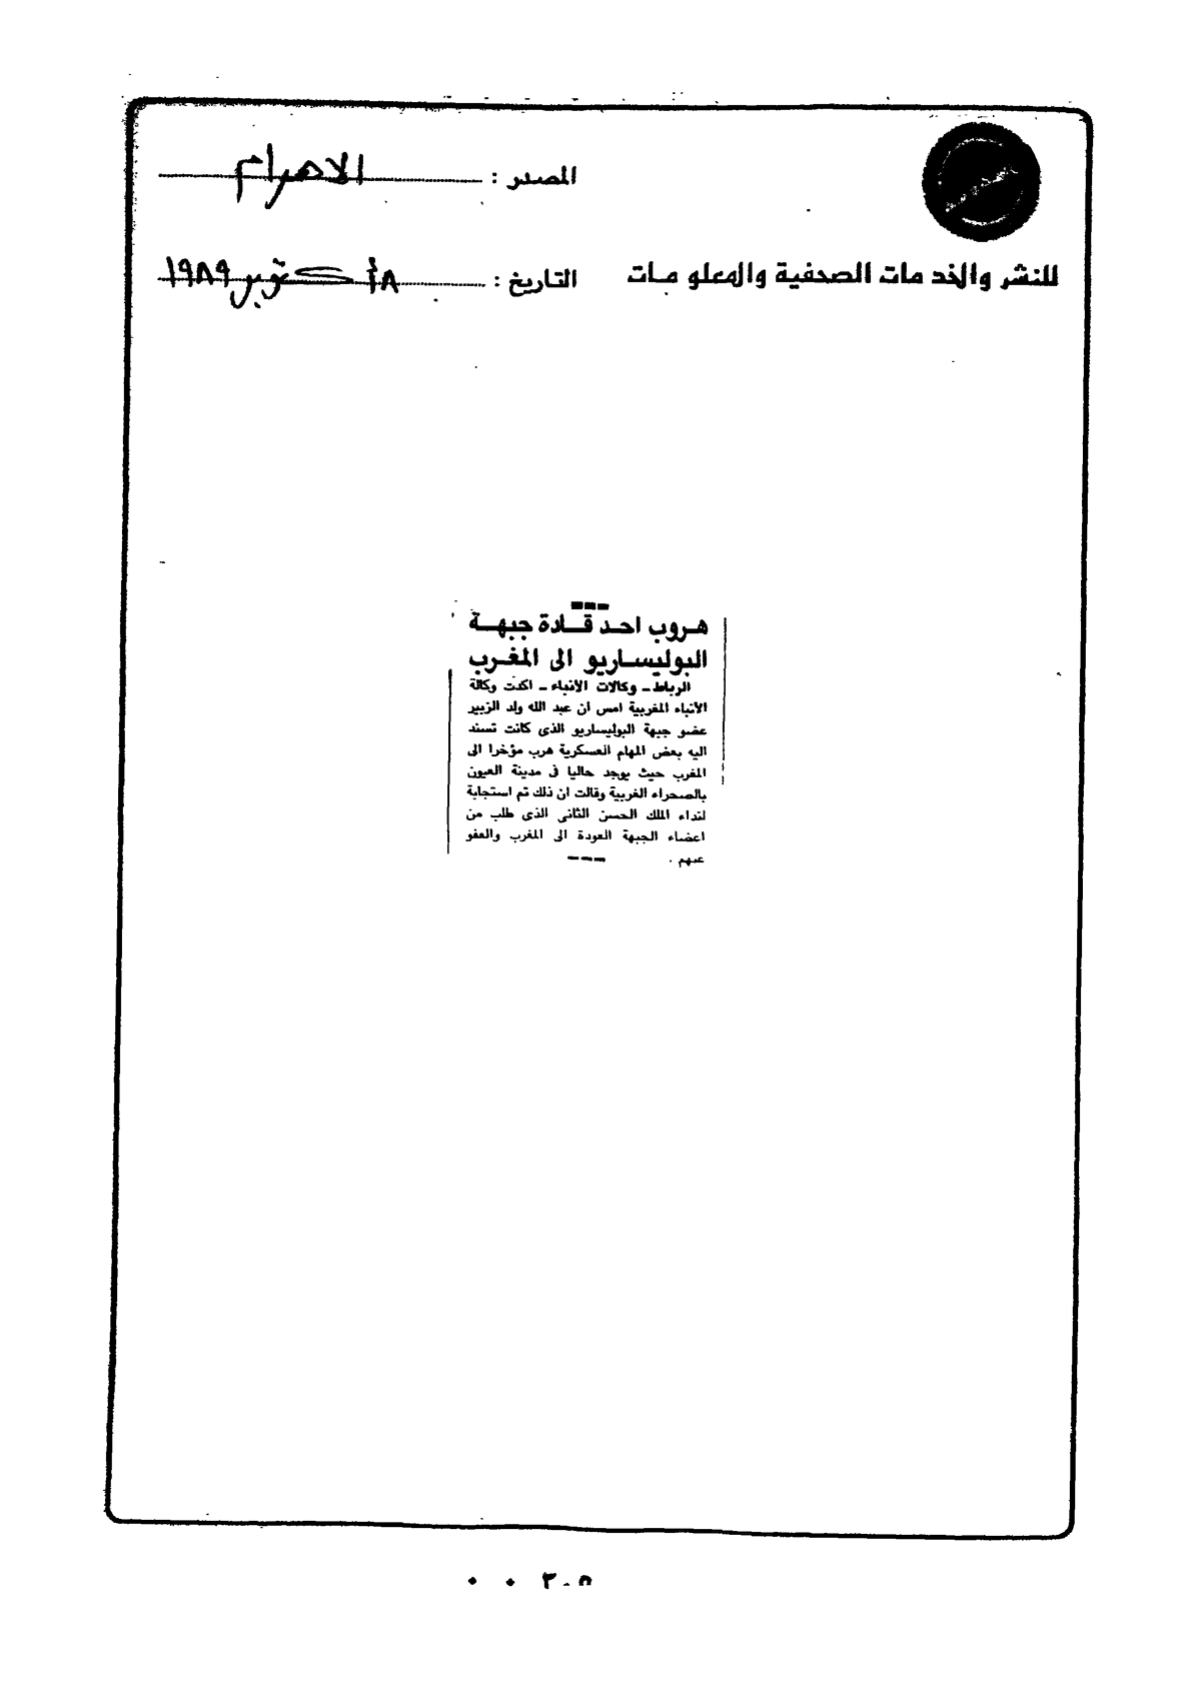 المصدر : الاهرام
للنشر والخدمات الصحفية والمعلومات
التاريخ : ٨ أكتوبر ١٩٨٩
هروب احد قادة جبهة
البوليساريو الى المغرب
الرباط ـ وكالات الأنباء ـ اكدت وكالة
الأنباء المغربية امس ان عبد الله ولد الزبير
عضو جبهة البوليساريو الذى كانت تسند
اليه بعض المهام العسكرية هرب مؤخرا الى
المغرب حيث يوجد حاليا فى مدينة العيون
بالصحراء الغربية وقالت ان ذلك تم استجابة
لنداء الملك الحسن الثانى الذى طلب من
اعضاء الجبهة العودة الى المغرب والعفو
عنهم .